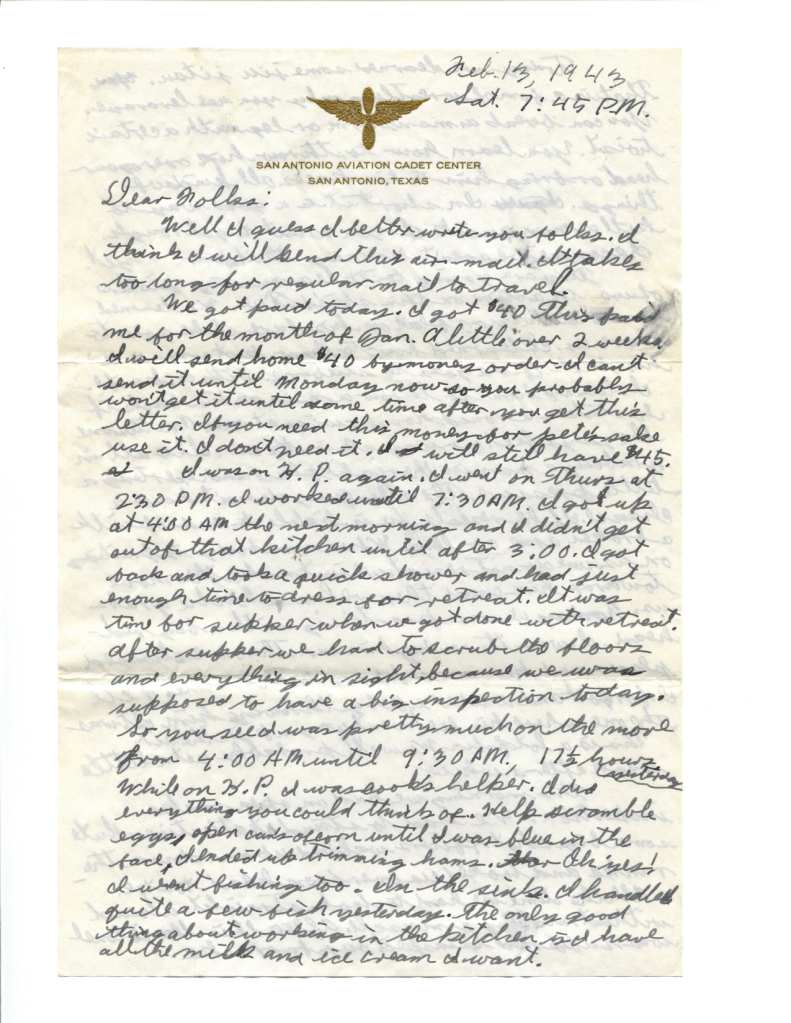 Feb. 13, 1943
Sat. 7:45 P.M.
SAN ANTONIO AVIATION CADET CENTER
SAN ANTONIO, TEXAS
Dear Folks:
Well I guess I better write you folks. I
think I will send this air-mail. It takes
too long for regular mail to travel.
We got paid today. I got $40 This paid
me for the month of Jan. A little over 2 weeks,
I will send home $40 by money order. I can't
send it until Monday now so you probably
won't get it until some time after you get this
letter. If you need this money for pete's sake
use it. I don't need it. I will still have $45.
I was on K.P. again. I went on Thurs at
2:30 P.M. I worked until 7:30 AM. I got up
at 4:00 AM the next morning and I didn't get
out of that kitchen until after 3:00. I got
back and took a quick shower and had just
enough time to dress for retreat. It was
time for supper when we got done with retreat.
After supper we had to scrub the floors
and everything in sight, because we was
supposed to have a big inspection today.
So you see I was pretty much on the move
from 4:00 AM until 9:30 AM, 17½ hours
yesterday
While on K.P. I was cook's helper. I did
everything you could think of. Help scramble
eggs, open cans of corn until I was blue in the
face, I ended up trimming hams. Oh yes!
I went fishing too. In the sink. I handled
quite a few fish yesterday. The only good
thing about working in the kitchen is I have
all the milk and ice cream I want.